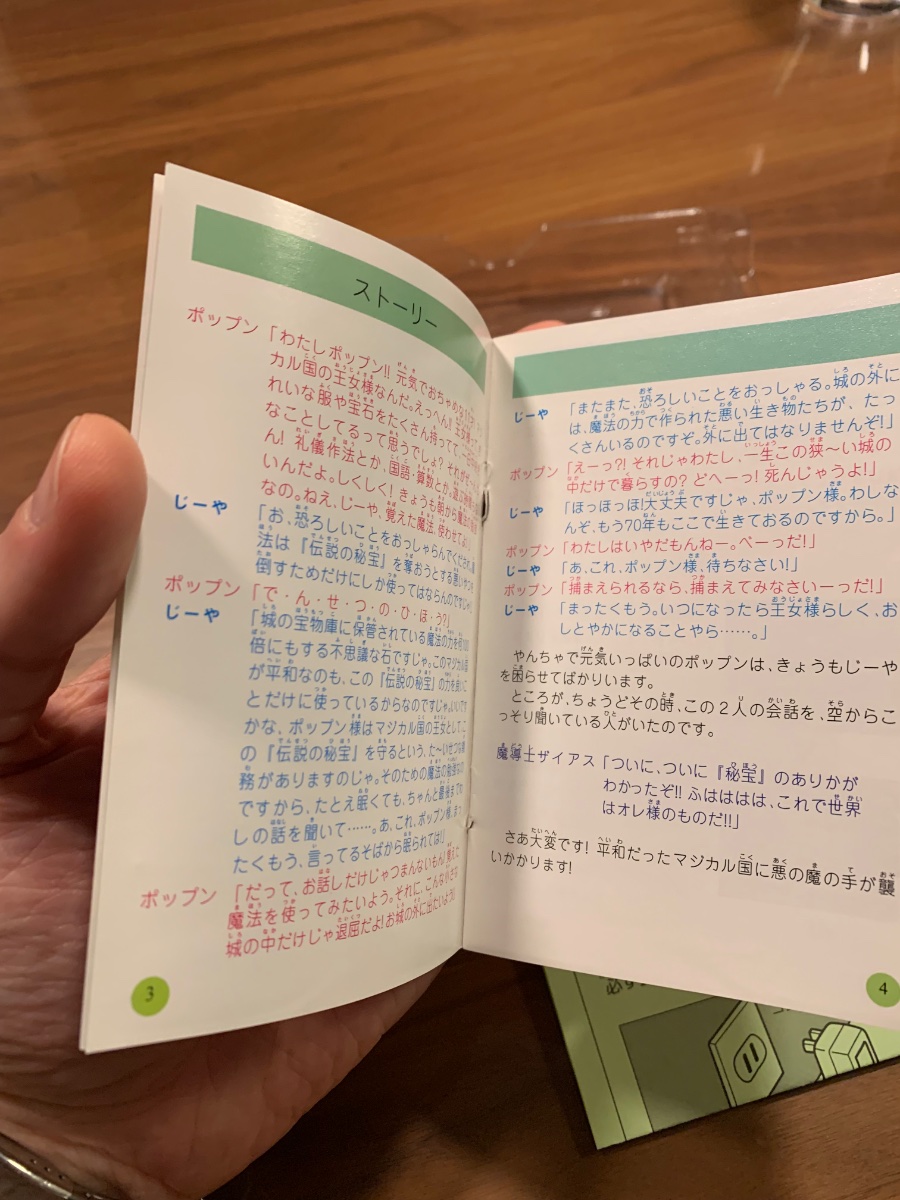 ストーリー
ポップン「わたしポップン!! 元気でおちゃめな
カル国の王女様なんだ。えっへん!
れいな服や宝石をたくさん持ってて、
なことしてるって思うでしょ? それが
ん! 礼儀作法とか、国語・算数とか、
いんだよ。しくしく! きょうも朝から魔法の
なの。ねえ、じーや、覚えた魔法、使わせてよ
じーや「お、恐ろしいことをおっしゃらんでくだされ。
法は『伝説の秘宝』を奪おうとする悪い
倒すためだけにしか使ってはならんのですじゃ
ポップン「で・ん・せ・つ・の・ひ・ほ・う?」
じーや「城の宝物庫に保管されている魔法の力を
倍にもする不思議な石ですじゃ。このマジカル国
が平和なのも、この『伝説の秘宝』の力を
とだけに使っているからなのですじゃ。いいです
かな、ポップン様はマジカル国の王女として、こ
の『伝説の秘宝』を守るという、た〜いせつな義
務がありますのじゃ。そのための魔法の勉強なの
ですから、たとえ眠くても、ちゃんと最後までわ
しの話を聞いて……。あ、これ、ポップン様、まっ
たくもう、言ってるそばから眠られては!」
ポップン「だって、お話しだけじゃつまんないもん! 覚えた
魔法を使ってみたいよう。それに、こんな小さな
城の中だけじゃ退屈だよ! お城の外に出たいよう」
3
じーや「またまた、恐ろしいことをおっしゃる。城の外に
は、魔法の力で作られた悪い生き物たちが、たっ
くさんいるのですぞ。外に出てはなりませんぞ!」
ポップン「えーっ?! それじゃわたし、一生この狭〜い城の
中だけで暮らすの? どへーっ! 死んじゃうよ!」
じーや「ほっほっほ! 大丈夫ですじゃ、ポップン様。わしな
んぞ、もう70年もここで生きておるのですから。」
ポップン「わたしはいやだもんねー。べーっだ!」
じーや「あ、これ、ポップン様、待ちなさい!」
ポップン「捕まえられるなら、捕まえてみなさいーっだ!」
じーや「まったくもう。いつになったら王女様らしく、お
しとやかになることやら……。」
やんちゃで元気いっぱいのポップンは、きょうもじーや
を困らせてばかりいます。
ところが、ちょうどその時、この2人の会話を、空からこ
っそり聞いている人がいたのです。
魔導士ザイアス「ついに、ついに『秘宝』のありかが
わかったぞ!! ふはははは、これで世界
はオレ様のものだ!!」
さあ大変です! 平和だったマジカル国に悪の魔の手が襲
いかかります!
4
必ず